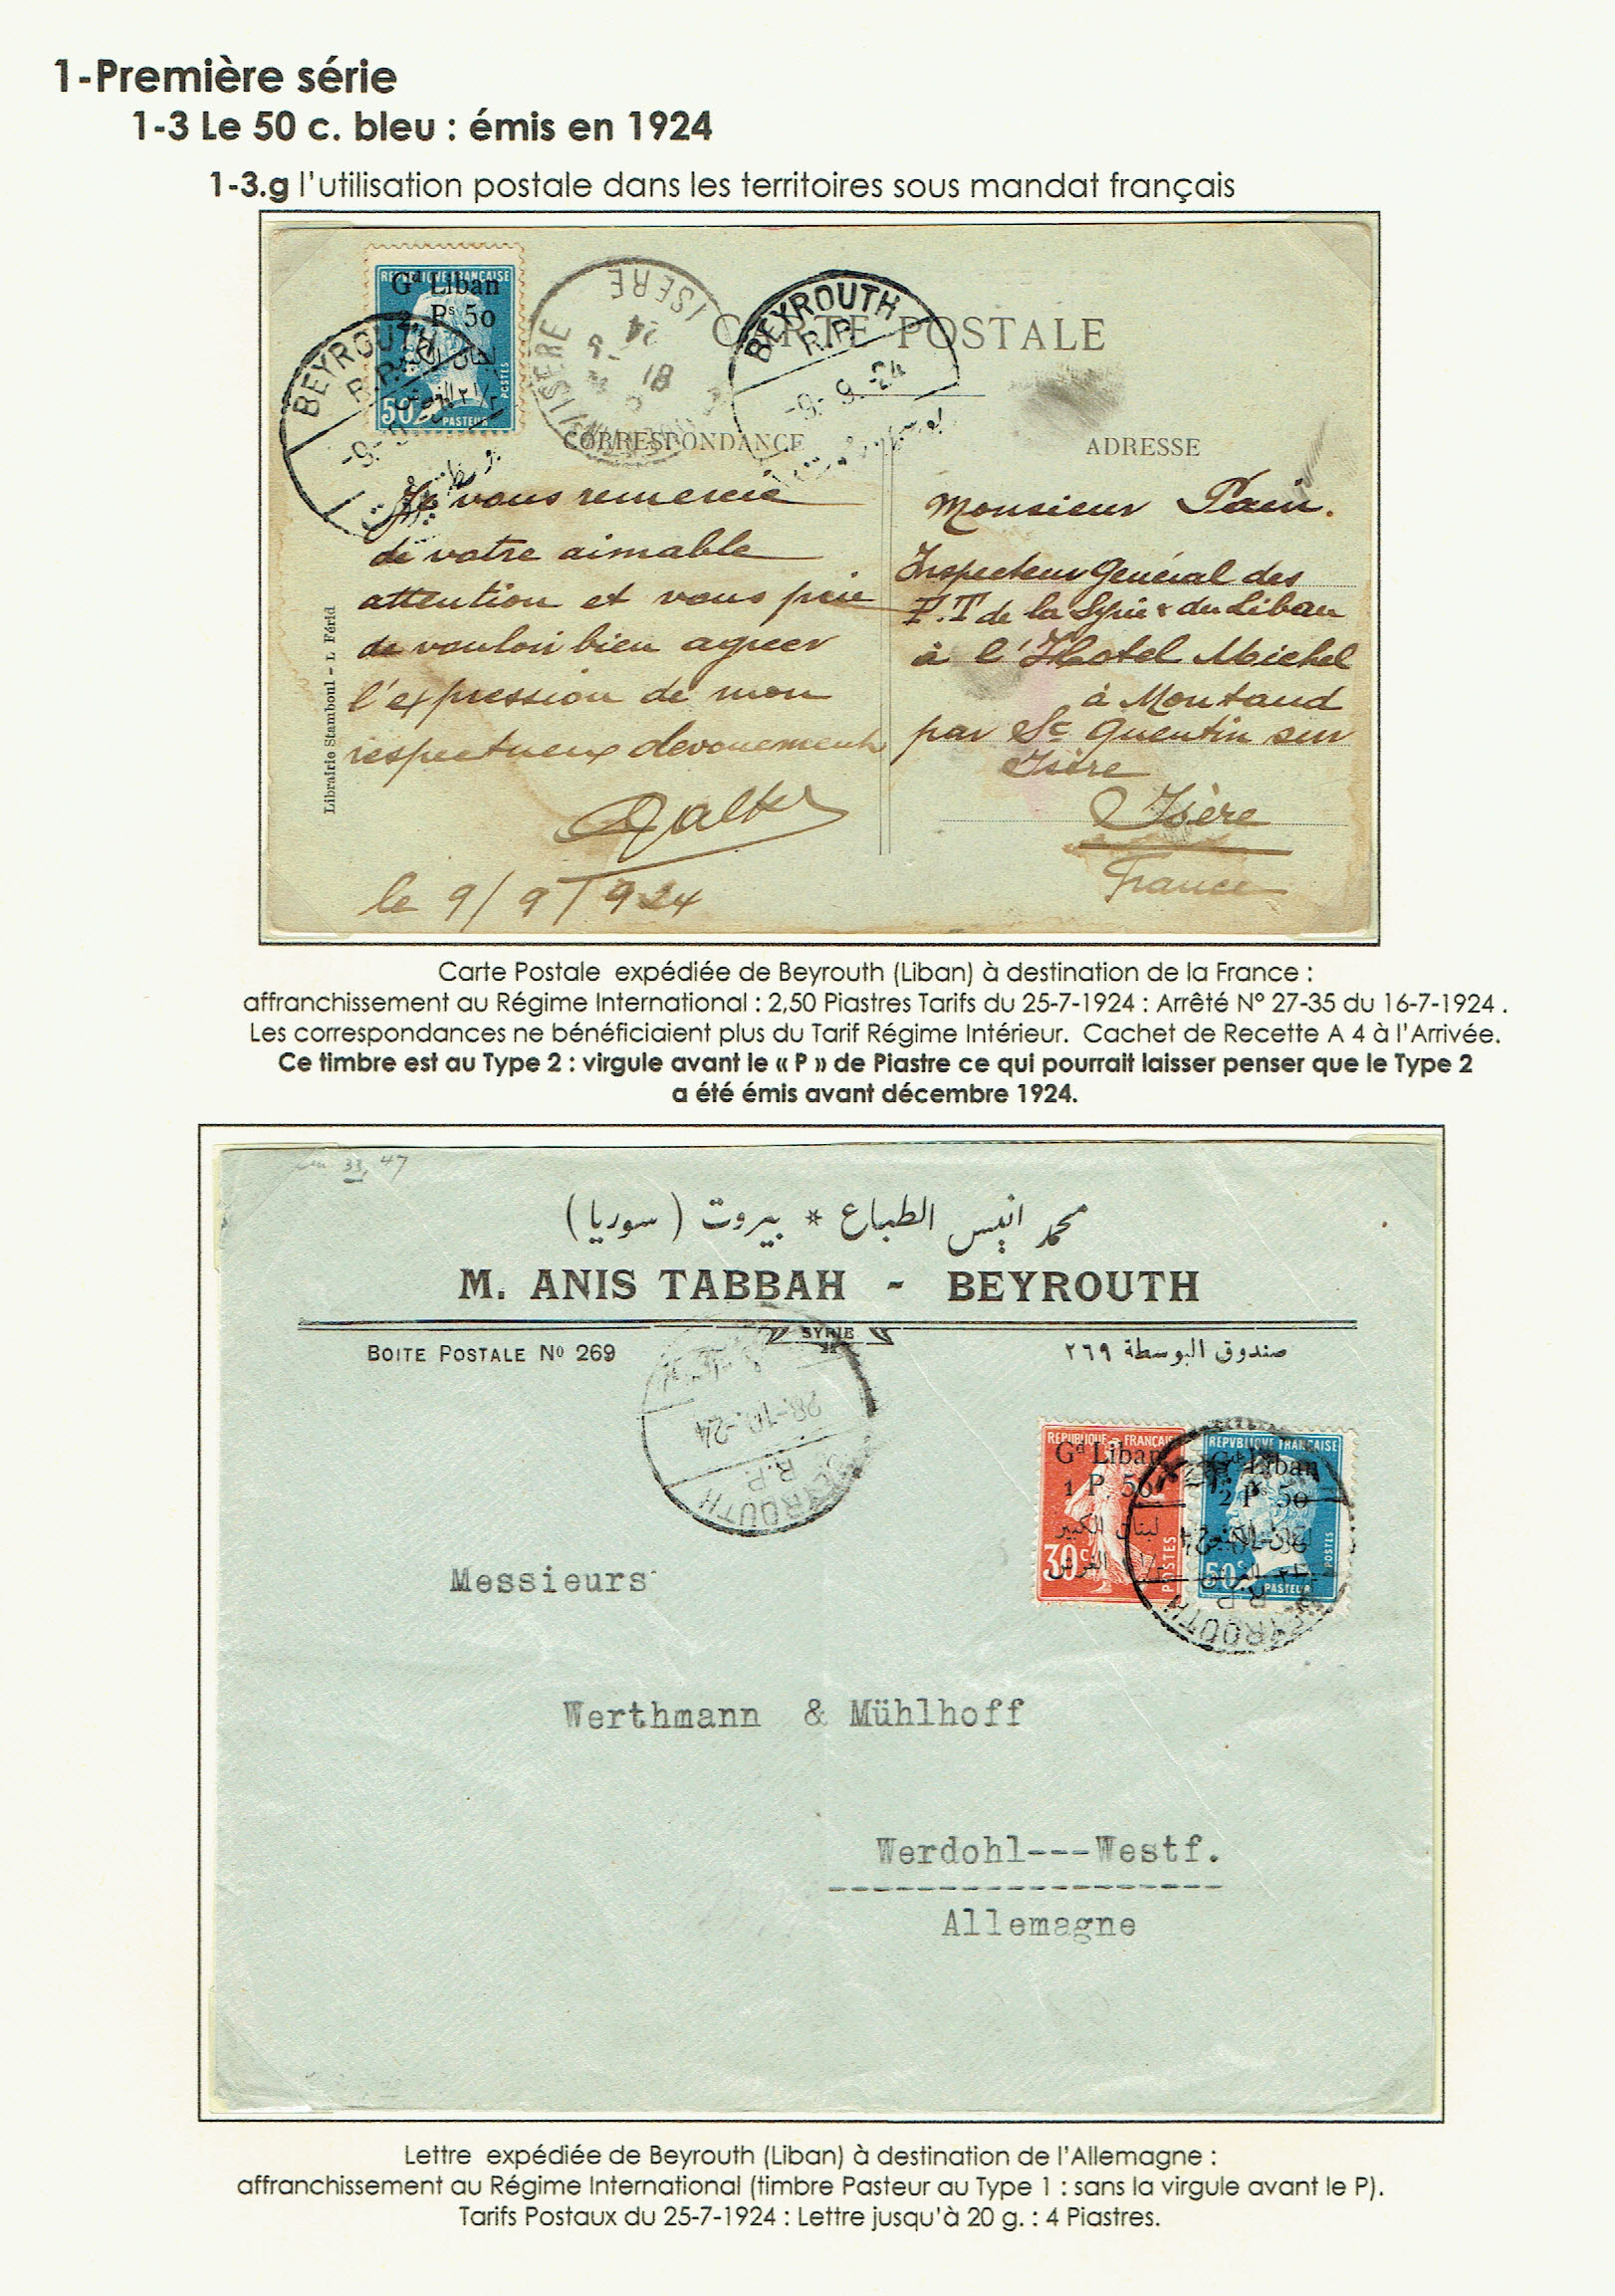 1-Première série
1-3 Le 50 c. bleu : émis en 1924
1-3.g l'utilisation postale dans les territoires sous mandat français
REPUBLIQUE FRANÇAISE
Gd Liban
2, Ps 50
50c
POSTES
PASTEUR
BEYROUTH
R.P.
ISERE
18
24
BEYROUTH
R.P.
-9.-9.-24
CARTE POSTALE
CORRESPONDANCE
ADRESSE
Je vous remercie
de votre aimable
attention et vous prie
de vouloir bien agreer
l'expression de mon
respectueux devouement
le 9/9/924
Librairie Stamboul - L Férid
Monsieur Pain.
Inspecteur Général des
P.T de la Syrie & du Liban
à l'Hotel Michel
à Montaud
par St Quentin sur
Isère
Isère
France
Carte Postale expédiée de Beyrouth (Liban) à destination de la France :
affranchissement au Régime International : 2,50 Piastres Tarifs du 25-7-1924 : Arrêté N° 27-35 du 16-7-1924 .
Les correspondances ne bénéficiaient plus du Tarif Régime Intérieur. Cachet de Recette A 4 à l'Arrivée.
Ce timbre est au Type 2 : virgule avant le « P » de Piastre ce qui pourrait laisser penser que le Type 2
a été émis avant décembre 1924.
33, 47
محمد انيس الطباع * بيروت (سوريا)
M. ANIS TABBAH - BEYROUTH
SYRIE
BOITE POSTALE No 269
صندوق البوسطة ٢٦٩
BEYROUTH
R.P.
28-10-24
REPUBLIQUE FRANÇAISE
Gd Liban
1 P. 50
لبنان الكبير
30c
POSTES
REPVBLIQVE FRANÇAISE
Gd Liban
2 Ps 50
50c
PASTEUR
POSTES
BEYROUTH
R.P.
Messieurs
Werthmann & Mühlhoff
Werdohl---Westf.
Allemagne
Lettre expédiée de Beyrouth (Liban) à destination de l'Allemagne :
affranchissement au Régime International (timbre Pasteur au Type 1 : sans la virgule avant le P).
Tarifs Postaux du 25-7-1924 : Lettre jusqu'à 20 g. : 4 Piastres.